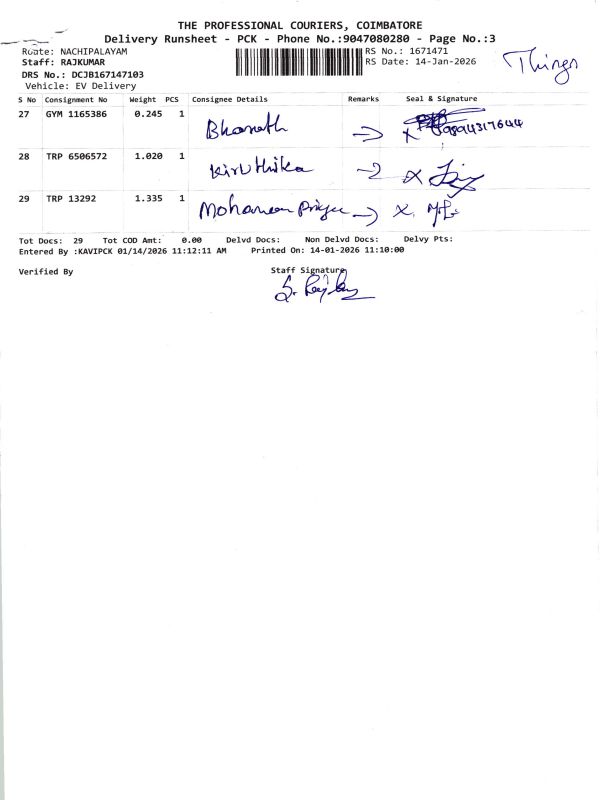 THE PROFESSIONAL COURIERS, COIMBATORE
Delivery Runsheet - PCK - Phone No.:9047080280 - Page No.:3
Route: NACHIPALAYAM RS No.: 1671471
Staff: RAJKUMAR RS Date: 14-Jan-2026
Things
DRS No.: DCJB167147103
Vehicle: EV Delivery
S No Consignment No Weight PCS Consignee Details Remarks Seal & Signature
27 GYM 1165386 0.245 1 Bharath → x 09894317644
28 TRP 6506572 1.020 1 Kiruthika → x
29 TRP 13292 1.335 1 Mohanan Priya → x.
Tot Docs: 29 Tot COD Amt: 0.00 Delvd Docs: Non Delvd Docs: Delvy Pts:
Entered By :KAVIPCK 01/14/2026 11:12:11 AM Printed On: 14-01-2026 11:10:00
Verified By Staff Signature